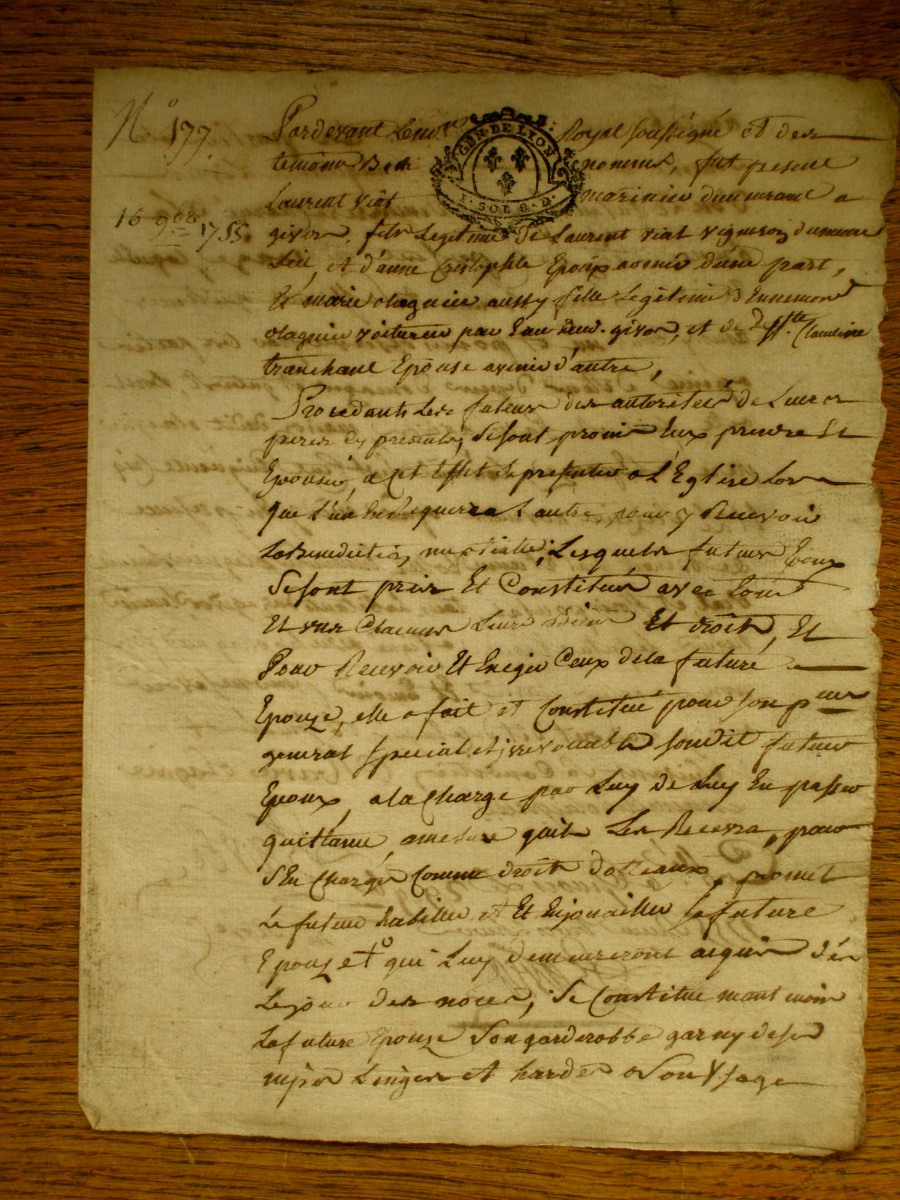 N.o 177
16 9bre 1755
GEN. DE LYON
1. SOL 8. D.
Pardevant Le no.re Royal soussigné et des
temoins Bas nommés, fut present
Laurent viat marinier demeurant a
givor, fils Legitime de Laurent viat vigneron du meme
Lieu, et d'anne Cristophle Epoux avenir d'une part,
Et marie olagnier aussy fille Legitime d'Ennemond
olagnier voiturier par Eau dud. givor, et de deffte. Claudine
tranchant Epouse avenir d'autre,
Procedants Les futurs des autorités de Leurs
peres cy presents, se sont promis Eux prendre Et
Epouser, a cet Effet se presenter a L'Eglise Lors
que L'un En Requerra L'autre, pour y Recevoir
La Benediction nuptialle, Lesquels futurs Epoux
se sont pris Et Constitués avec tous
Et uns Chacuns Leurs Biens Et droits, Et
Pour Recevoir Et Exiger Ceux de la future
Epouze, elle a fait et Constitué pour son p.eur
general special et irrevocable sondit futur
Epoux, a la Charge par Luy de Luy En passer
quittance amesure quil Les Recevra, pour
s'En Charger Comme droits dotteaux, promet
Le futur habiller et Et Enjouailler la future
Epouze qui Luy demeureront acquis dés
Le jour des noces, se Constitue
La future Epouze son garderobbe garny de ses
nipes Linges et hardes a son Usage